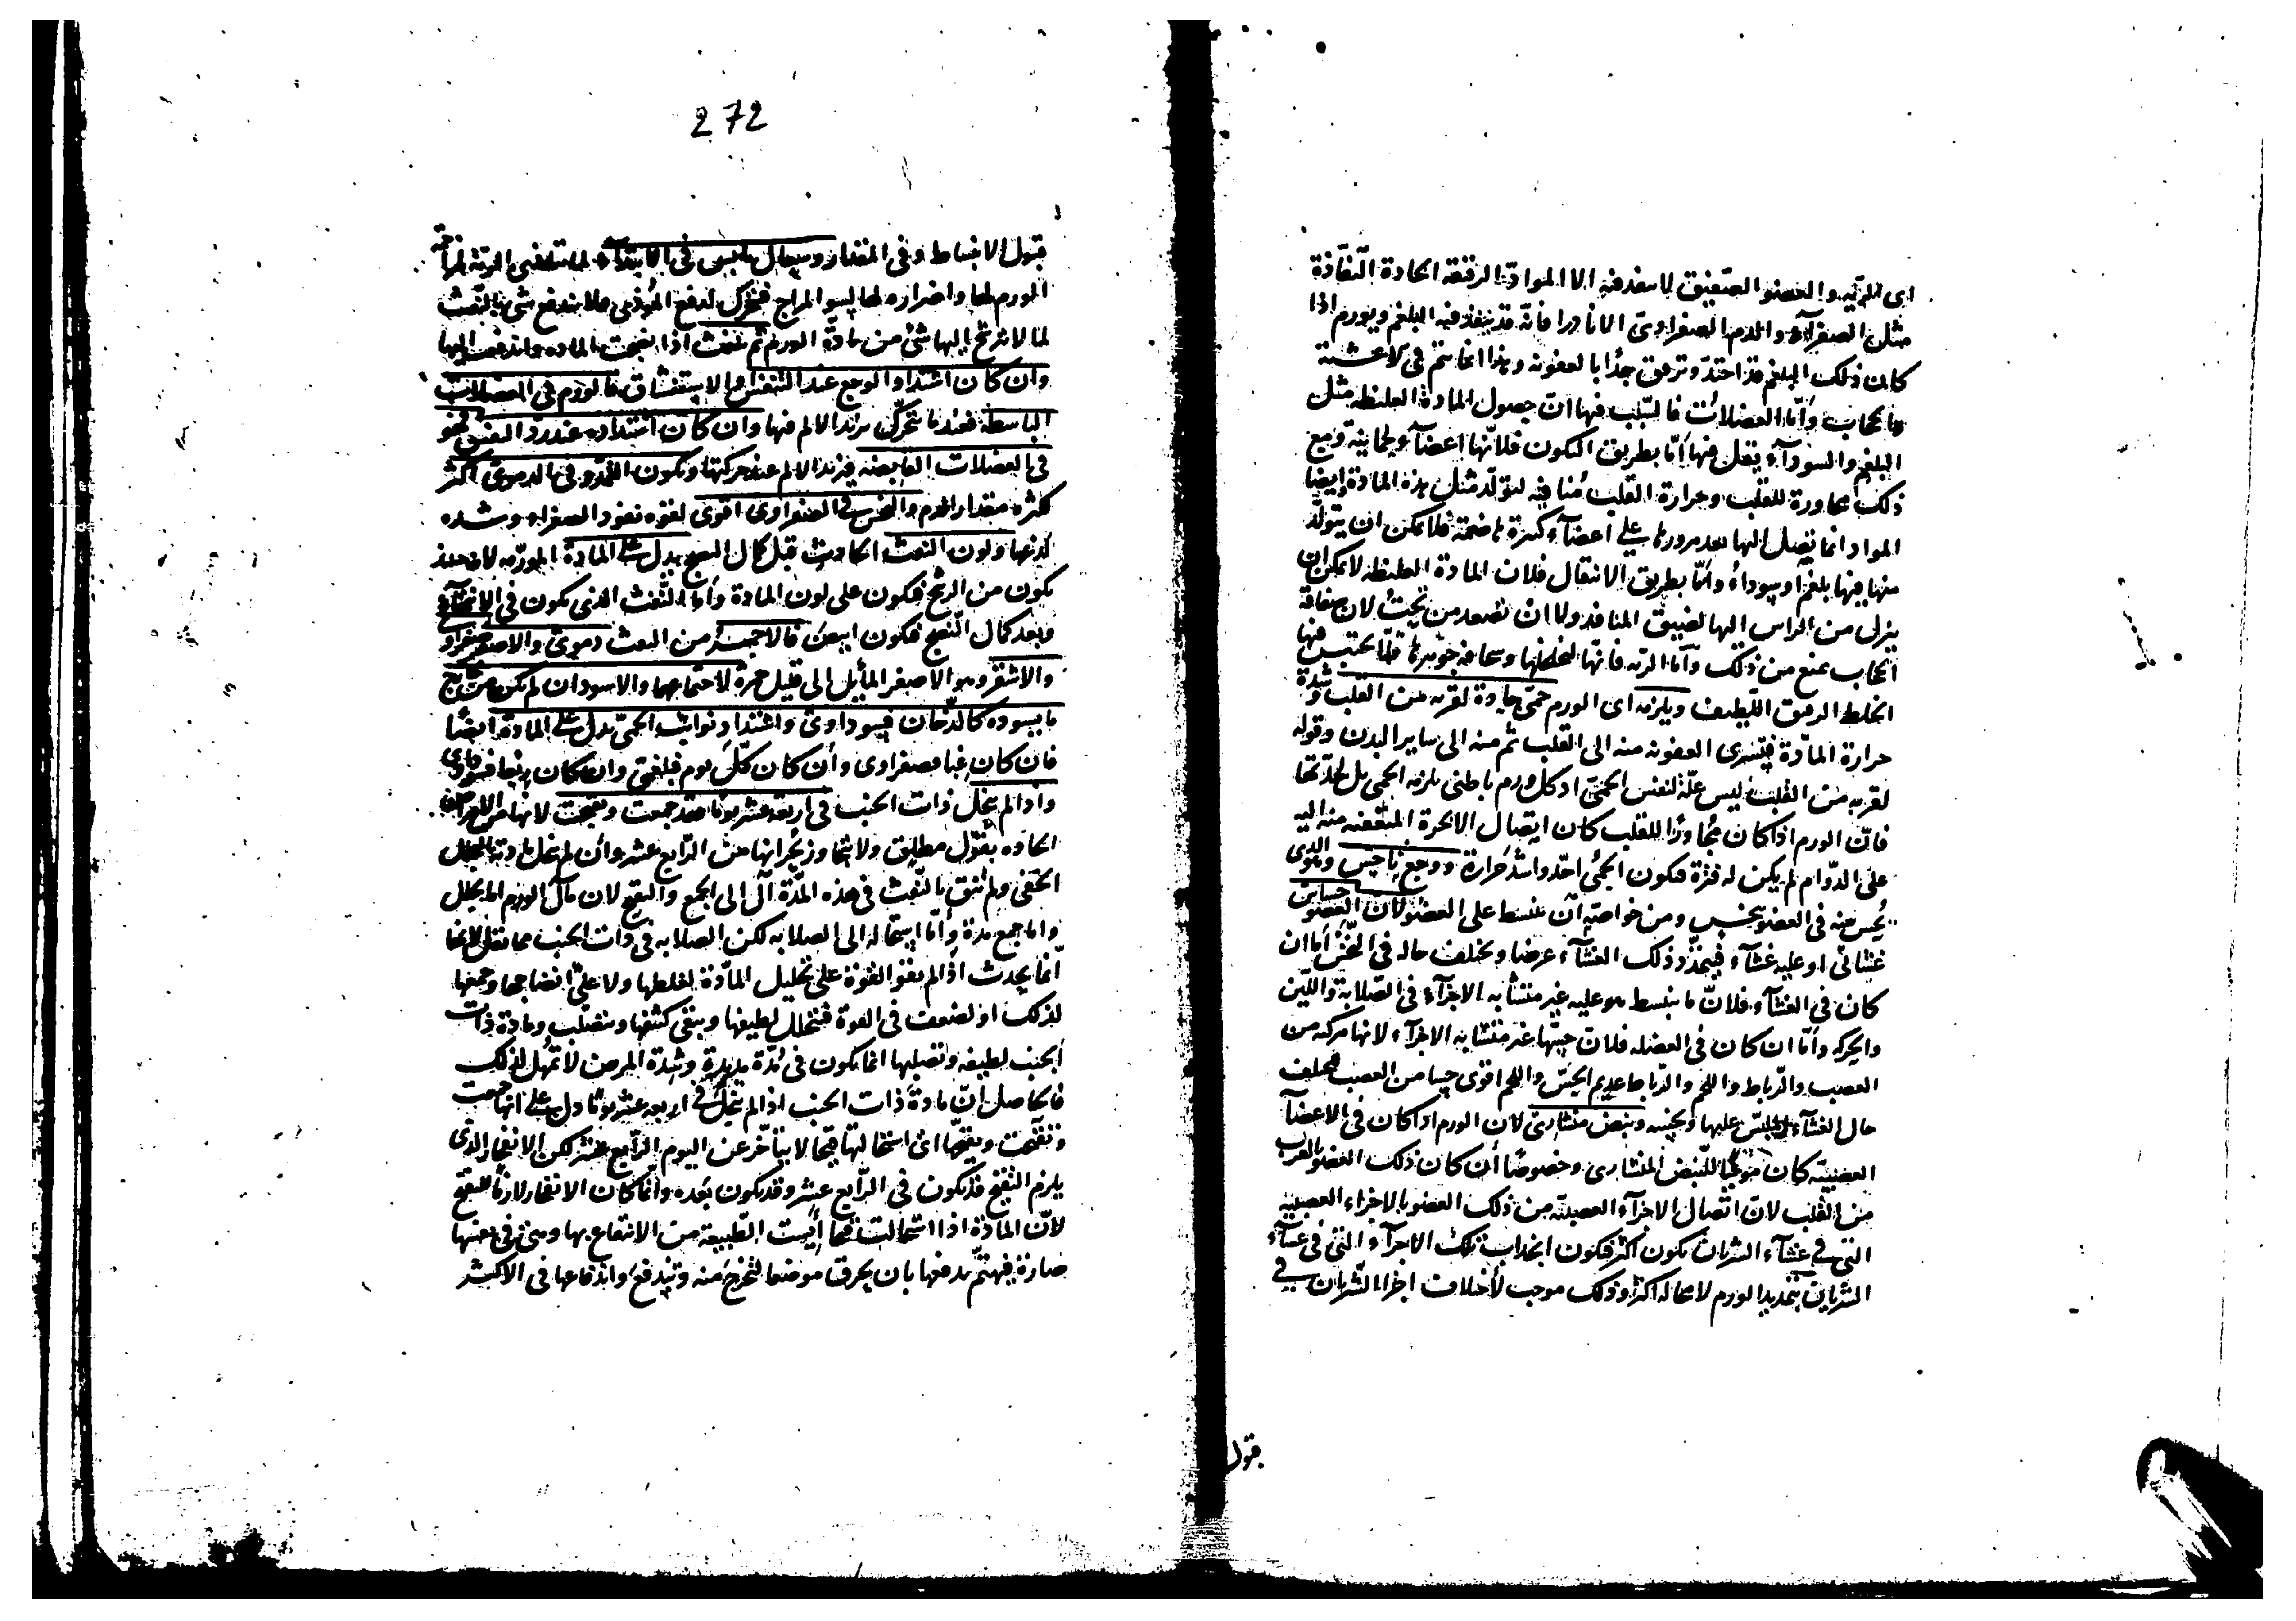 اى المريه والعضو الصفيق لا ينفذ فيه الا المواد الرقيقة الحادة النفاذة
مثل الصفرآء والدم الصفراوى الا نادرا فانه قد ينفذ فيه البلغم ويورم اذا
كان ذلك البلغم قد احتد وترقق جدا بالعفونه وهذا انما يتم فى الاغشية
والحجاب وأما العضلات فالسبب فيها ان حصول المادة الغليظه مثل
البلغم والسودآء يقل فيها اما بطريق التكون فلانها اعضآء لحمانية ومع
ذلك مجاورة للقلب وحرارة القلب منافيه لتولد مثل هذه المادة وايضا
المواد انما يتصل اليها بعد مرورها على اعضآء كثيرة هاضمة فلا يمكن ان يتولد
منها فيها بلغم او سودآء وأما بطريق الانتقال فلان المادة الغليظه لا يمكن ان
ينزل من الراس اليها لضيق المنافذ ولا ان تصعد من تحت لان صفاقة
الحجاب يمنع من ذلك وأما الريه فانها لتخلخلها وسخافه جوهرها قلما يحتبس فيها
الخلط الرقيق اللطيف ويلزمه اى الورم حمى حادة لقربه من القلب وشدة
حرارة المادة فيتسرى العفونه منه الى القلب ثم منه الى ساير البدن وقوله
لقربه من القلب ليس علة لنفس الحمى اذ كل ورم باطنى يلزمه الحمى بل لحدتها
فان الورم اذا كان مجاورا للقلب كان اتصال الابخرة المتعفنه منه اليه
على الدوام لم يكن له فترة فتكون الحمى احد واشد حرارة ووجع ناخس وهو الذى
يحس معه فى العضو بنخس ومن خواصه ان ينبسط على العضو لان العضو حساس
غشائى او عليه غشآء فيتمدد ذلك الغشآء عرضا ويختلف حاله فى النخس اما ان
كان فى الغشآء فلان ما ينبسط هو عليه غير متشابه الاجزآء فى الصلابة واللين
والحركه وأما ان كان فى العضله فلان جسمها غير متشابه الاجزآء لانها مركبه من
العصب والرباط واللحم والرباط عديم الحس واللحم اقوى حسا من العصب فيختلف
حال الغشآء عليها ونبض منشارى لان الورم اذا كان فى الاعضآ
العصبيه كان موجبا للنبض المنشارى وخصوصا ان كان ذلك العضو بالقرب
من القلب لان اتصال الاجزآء العصبيه من ذلك العضو بالاجزاء العصبيه
التى فى غشآء الشريان يكون اكثر فيكون انجذاب تلك الاجزآء التى فى غشآء
الشريان بتمديد الورم لا محاله اكثر وذلك موجب لأختلاف اجزاء الشريان فى
قبول
272
قبول الانبساط وفى المقدار وسعال يابس فى الابتدآء لما تتاذى الريه لمزاحمة
الورم لها واضراره لها بسو المزاج فتتحرك لدفع المؤذى ولا يندفع شى بالنفث
لما لا يترشح اليها شئ من مادة الورم ثم ينفث اذا نضجت المادة واندفعت اليها
وان كان اشتداد الوجع عند التنفس والاستنشاق فالورم فى العضلات
الباسطة فعند ما تتحرك يزيد الالم فيها وان كان اشتداده عند رد النفس فهو
فى العضلات القابضه فيزيد الالم عند حركتها ويكون التمدد فى الدموى اكثر
لكثره مقدار الدم والنخس فى الصفراوى اقوى لقوه نفوذ الصفراء وشده
لذعها ولون النفث الحادث قبل كمال النضج يدل على المادة المورمه لانه حينئذ
يكون من الرشح فيكون على لون المادة وأما النفث الذى يكون فى الانتهآء
وبعد كمال النضج فيكون ابيض فالاحمر من النفث دموى والاصفر صفراوى
والاشقر وهو الاصفر المايل الى قليل حمرة لاجتماعهما والاسود ان لم يكن من خارج
ما يسوده كالدخان فسوداوى واشتداد نوايب الحمى يدل على المادة ايضا
فان كان غبا فصفراوى وأن كان كل يوم فبلغمى وان كان ربعا فسوداوى
واذا لم ينحل ذات الجنب فى اربعة عشر يوما فقد جمعت وتقيحت لانها من الامراض
الحاده بقول مطلق ولا يتجاوز بحرانها من الرابع عشر وأن لم ينحل مادته بالتحلل
الخفى ولم تنق بالنفث فى هذه المدة آل الى الجمع والتقيح لان مآل الورم اما تحلل
واما جمع مدة وأما استحاله الى الصلابه لكن الصلابه فى ذات الجنب مما تقل لانها
انما يحدث اذا لم يقو القوة على تحليل المادة لغلظها ولا على انضاجها وجمعها
لذلك او لضعف فى القوة فيتحلل لطيفها ويبقى كثيفها ويتصلب ومادة ذات
الجنب لطيفه وتصلبها انما يكون فى مدة مديدة وشدة المرض لا تمهل لذلك
فالحاصل ان مادة ذات الجنب اذا لم ينحل فى اربعه عشر يوما دل على انها جمعت
وتقيحت وتقيحها اى استحالتها قيحا لا يتأخر عن اليوم الرابع عشر لكن الانفجار الذى
يلزم التقيح قد يكون فى الرابع عشر وقد يكون بعده وأنما كان الانفجار لازما للتقيح
لأن المادة اذا استحالت قيحا أيست الطبيعة من الانتفاع بها وهى فى نفسها
ضارة فيهتم بدفعها بان يخرق موضعا لتخرج منه وتندفع واندفاعها فى الاكثر